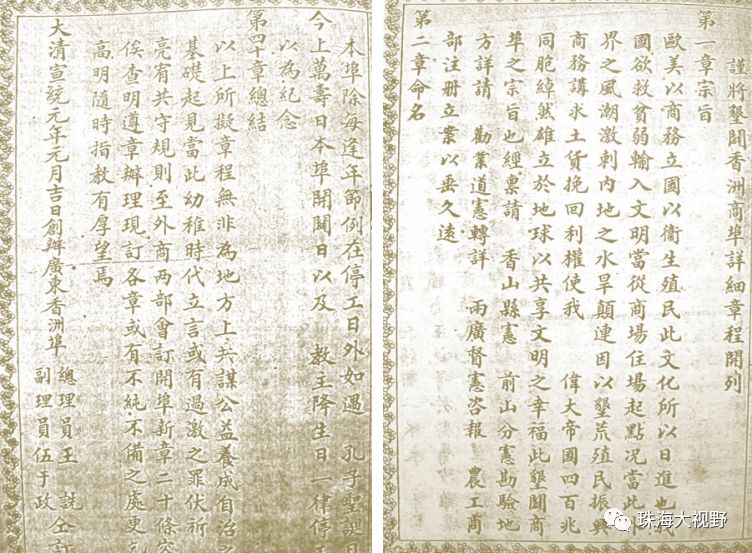 謹將墾闢香洲商埠詳細章程開列
第一章宗旨
歐美以商務立國以衞生殖民此文化所以日進也
國欲救貧弱輸入文明當從商場住場起點況當此
界之風潮激刺內地之水旱顛連因以墾荒殖民振興
商務講求土貨挽回利權使我 偉大帝國四百兆
同胞綽然雄立於地球以共享文明之幸福此墾闢商
埠之宗旨也經稟請 香山縣憲 前山分憲勘驗地
方詳請 勸業道憲轉詳 兩廣督憲咨報 農工商
部注册立案以垂久遠
第二章命名
本埠除每逢年節例在停工日外如遇 孔子聖誕日
今上萬壽日本埠開闢日以及 教主降生日一律停
以為紀念
第四十章總結
以上所擬章程無非為地方上共謀公益養成自治
基礎起見當此幼稚時代立言或有過激之罪伏祈
亮有共守規則至外商兩部會訂開埠新章二十條容
俟查明遵章辦理現訂各章或有不純不備之處更乞
高明隨時指教有厚望焉
大清宣統元年元月吉日創辦廣東香洲埠
總理員王 詵 仝訂
副理員伍于政
珠海大视野